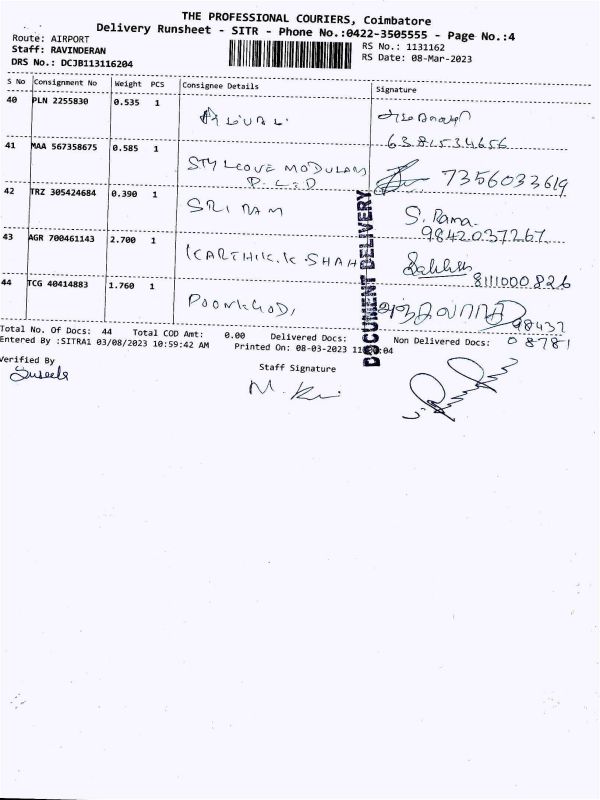 THE PROFESSIONAL COURIERS, Coimbatore
Delivery Runsheet - SITR - Phone No.:0422-3505555 - Page No.:4
Route: AIRPORT
Staff: RAVINDERAN
DRS No.: DCJB113116204
RS No.: 1131162
RS Date: 08-Mar-2023
S No Consignment No Weight PCS Consignee Details Signature
40 PLN 2255830 0.535 1
41 MAA 567358675 0.585 1 STYLEOVE MODULAR P.LTD 7356033619
42 TRZ 305424684 0.390 1 SRI RAM S. Rama. 9842037267
43 AGR 700461143 2.700 1 KARTHIK.K SHAH 8111000826
44 TCG 40414883 1.760 1 POONKHODI 98437 08781
DOCUMENT DELIVERY
Total No. Of Docs: 44 Total COD Amt: 0.00 Delivered Docs: Non Delivered Docs:
Entered By :SITRA1 03/08/2023 10:59:42 AM Printed On: 08-03-2023
Verified By
Staff Signature
Suseela